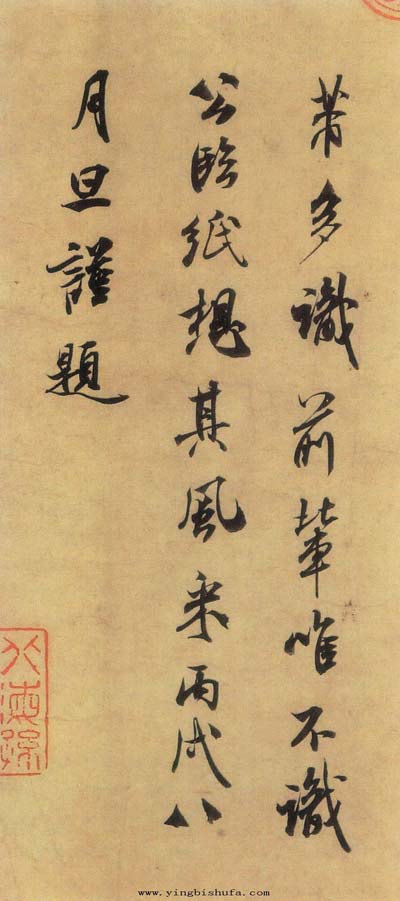 芾多識前輩唯不識
公臨紙想其風采丙戌八
月旦謹題
www.yingbishufa.com